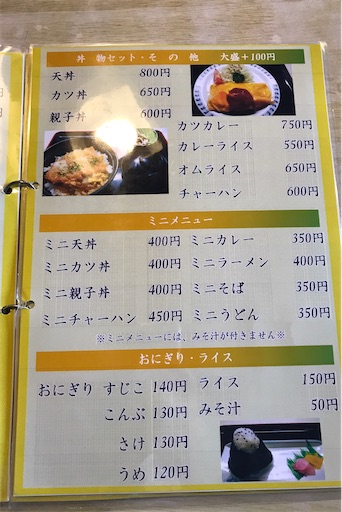 丼物セット・その他 大盛+100円
天丼 800円
カツ丼 650円
親子丼 600円
カツカレー 750円
カレーライス 550円
オムライス 650円
チャーハン 600円
ミニメニュー
ミニ天丼 400円 ミニカレー 350円
ミニカツ丼 400円 ミニラーメン 400円
ミニ親子丼 400円 ミニそば 350円
ミニチャーハン 450円 ミニうどん 350円
※ミニメニューには、みそ汁が付きません※
おにぎり・ライス
おにぎり すじこ 140円 ライス 150円
こんぶ 130円 みそ汁 50円
さけ 130円
うめ 120円